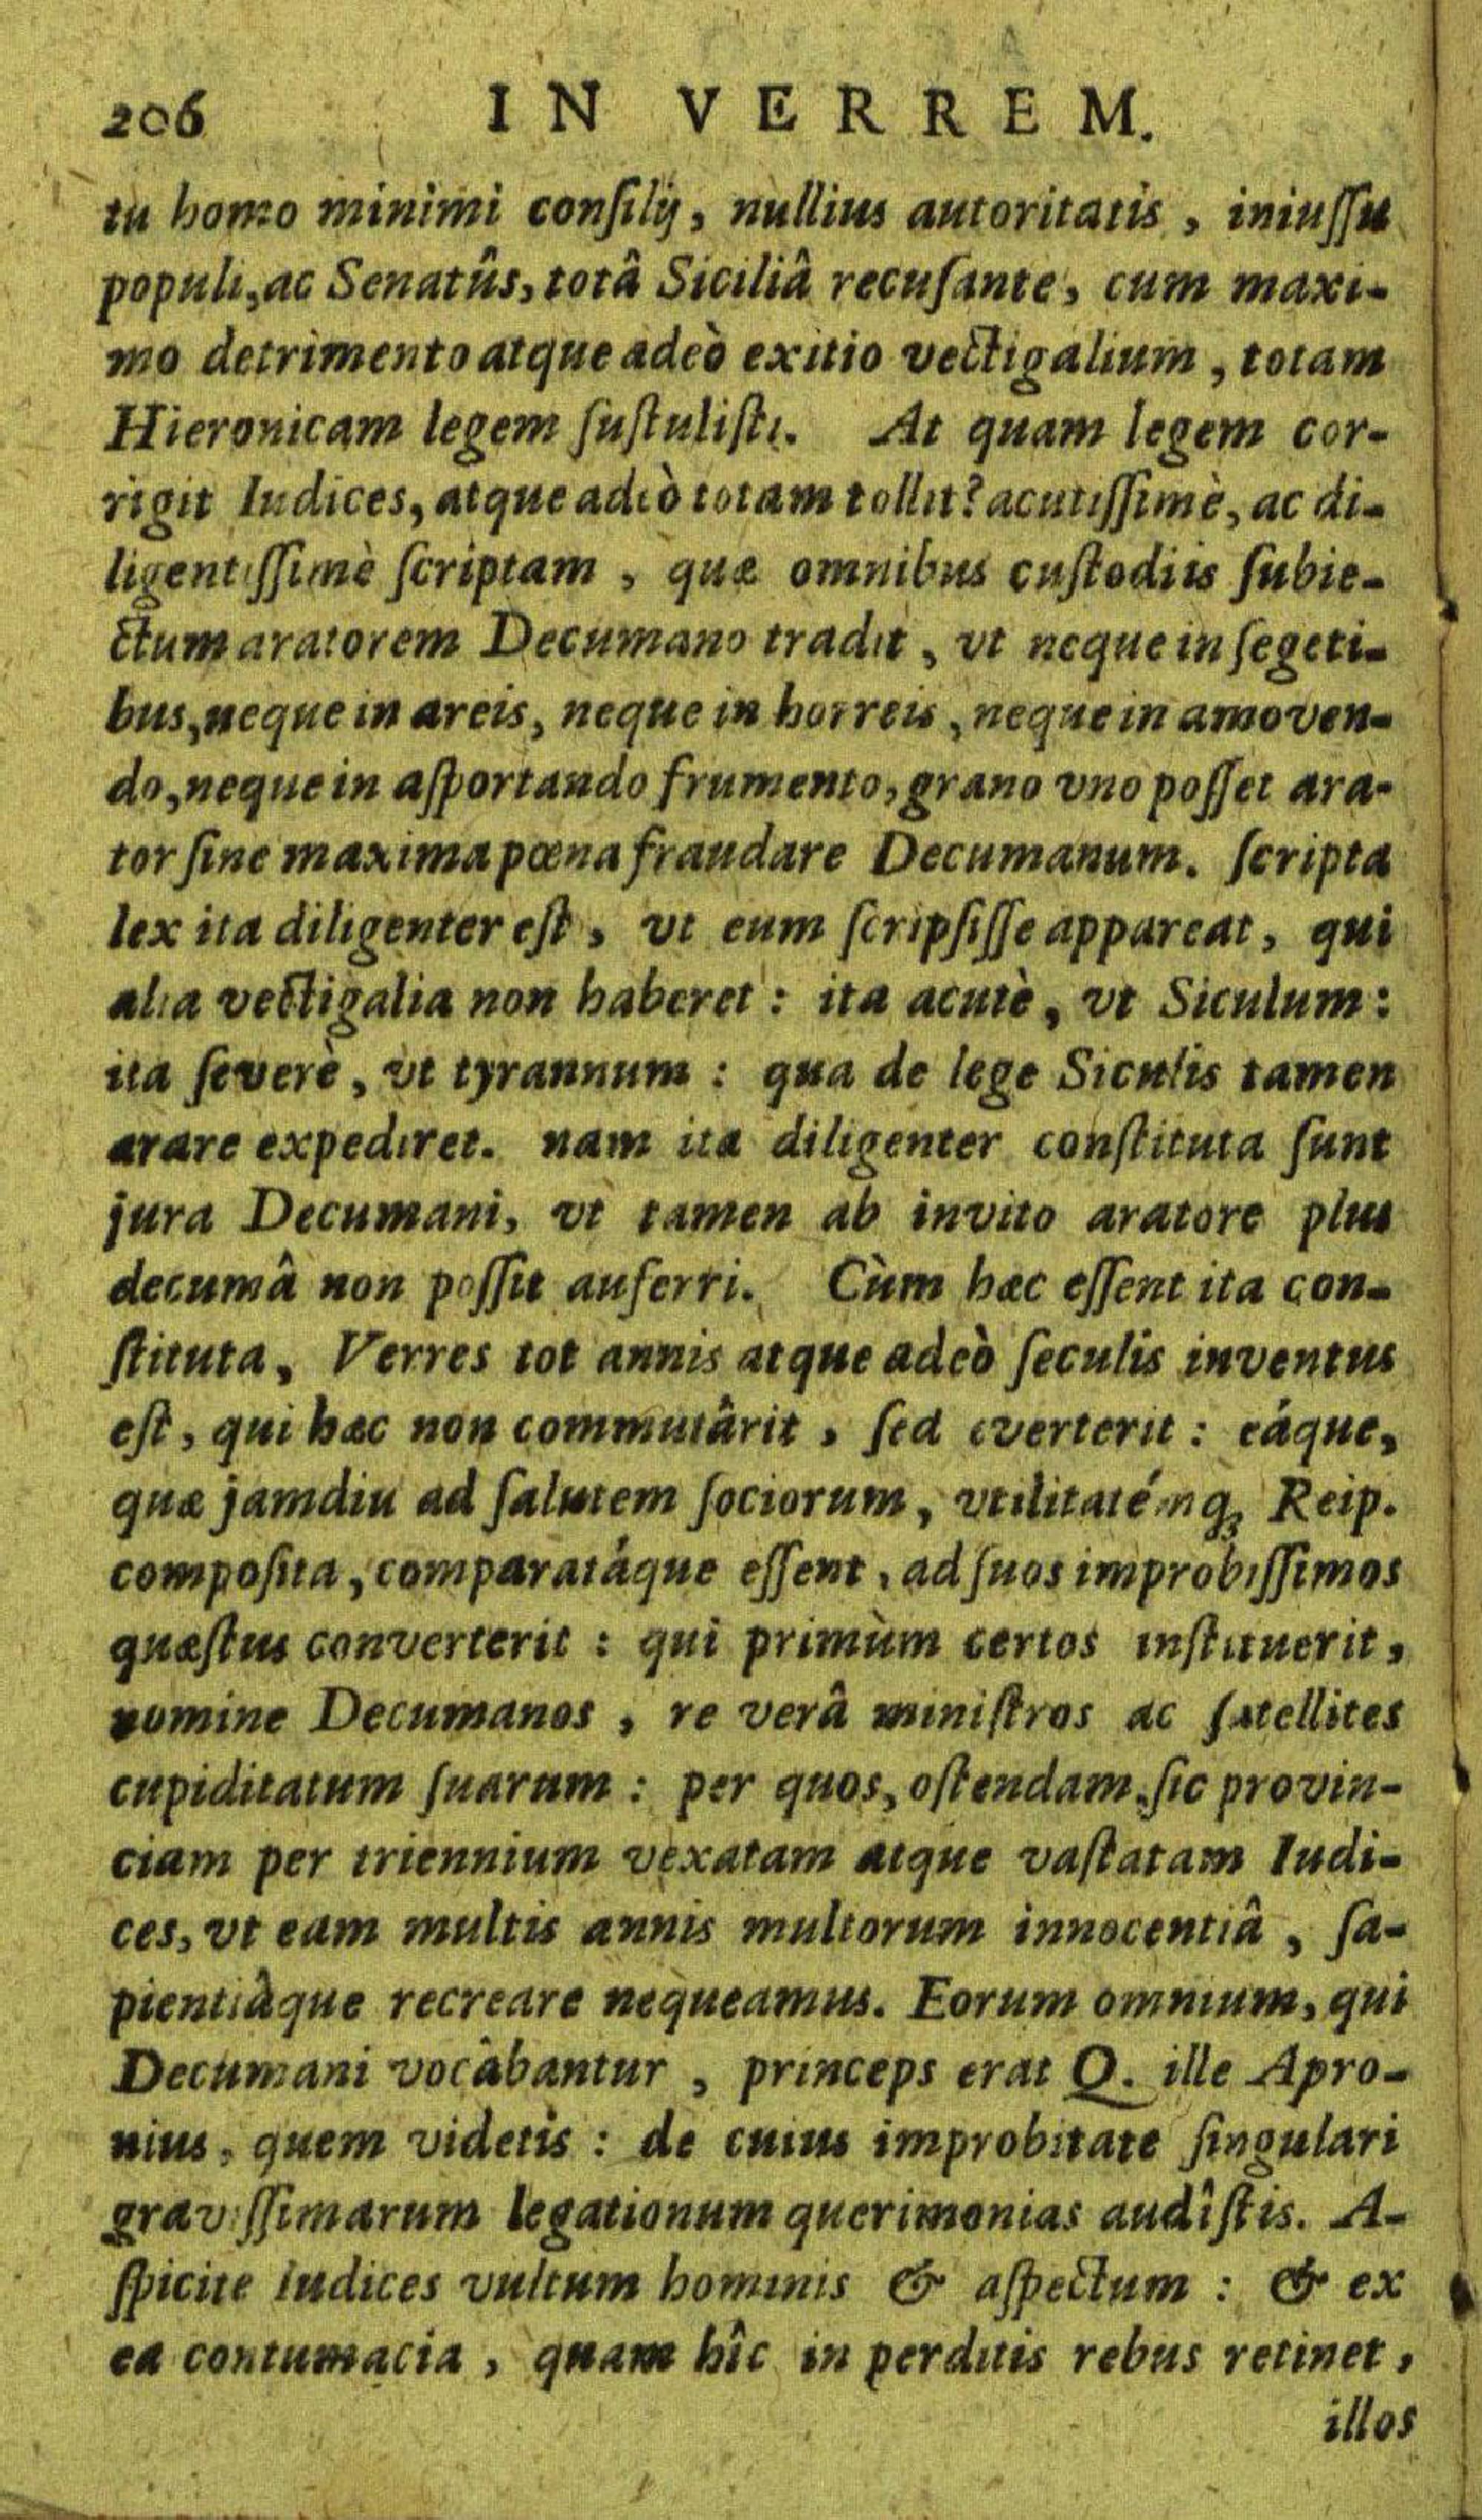 206 IN VERREM.
tu homo minimi conſilij, nullius autoritatis, iniuſſu
populi, ac Senatûs, totâ Siciliâ recuſante, cum maxi-
mo detrimento atque adeò exitio vectigalium, totam
Hieronicam legem ſuſtuliſti. At quam legem cor-
rigit Iudices, atque adeò totam tollit? acutiſſimè, ac di-
ligentiſſimè ſcriptam, quæ omnibus cuſtodiis ſubie-
ctum aratorem Decumano tradit, vt neque in ſegeti-
bus, neque in areis, neque in horreis, neque in amoven-
do, neque in aſportando frumento, grano vno poſſet ara-
tor ſine maxima pœna fraudare Decumanum. ſcripta
lex ita diligenter eſt, vt eum ſcripſiſſe appareat, qui
alia vectigalia non haberet: ita acutè, vt Siculum:
ita ſeverè, vt tyrannum: qua de lege Siculis tamen
arare expediret. nam ita diligenter conſtituta ſunt
jura Decumani, vt tamen ab invito aratore plus
decumâ non poſſit auferri. Cùm hæc eſſent ita con-
ſtituta, Verres tot annis atque adeò ſeculis inventus
eſt, qui hæc non commutârit, ſed everterit: eáque,
quæ jamdiu ad ſalutem ſociorum, vtilitatémq; Reip.
compoſita, comparatáque eſſent, ad ſuos improbiſſimos
quæſtus converterit: qui primùm certos inſtituerit,
nomine Decumanos, re verâ miniſtros ac ſatellites
cupiditatum ſuarum: per quos, oſtendam, ſic provin-
ciam per triennium vexatam atque vaſtatam Iudi-
ces, vt eam multis annis multorum innocentiâ, ſa-
pientiâque recreare nequeamus. Eorum omnium, qui
Decumani vocâbantur, princeps erat Q. ille Apro-
nius, quem videtis: de cuius improbitate ſingulari
graviſſimarum legationum querimonias audîſtis. A-
ſpicite Iudices vultum hominis & aſpectum: & ex
ea contumacia, quam hîc in perditis rebus retinet,
illos